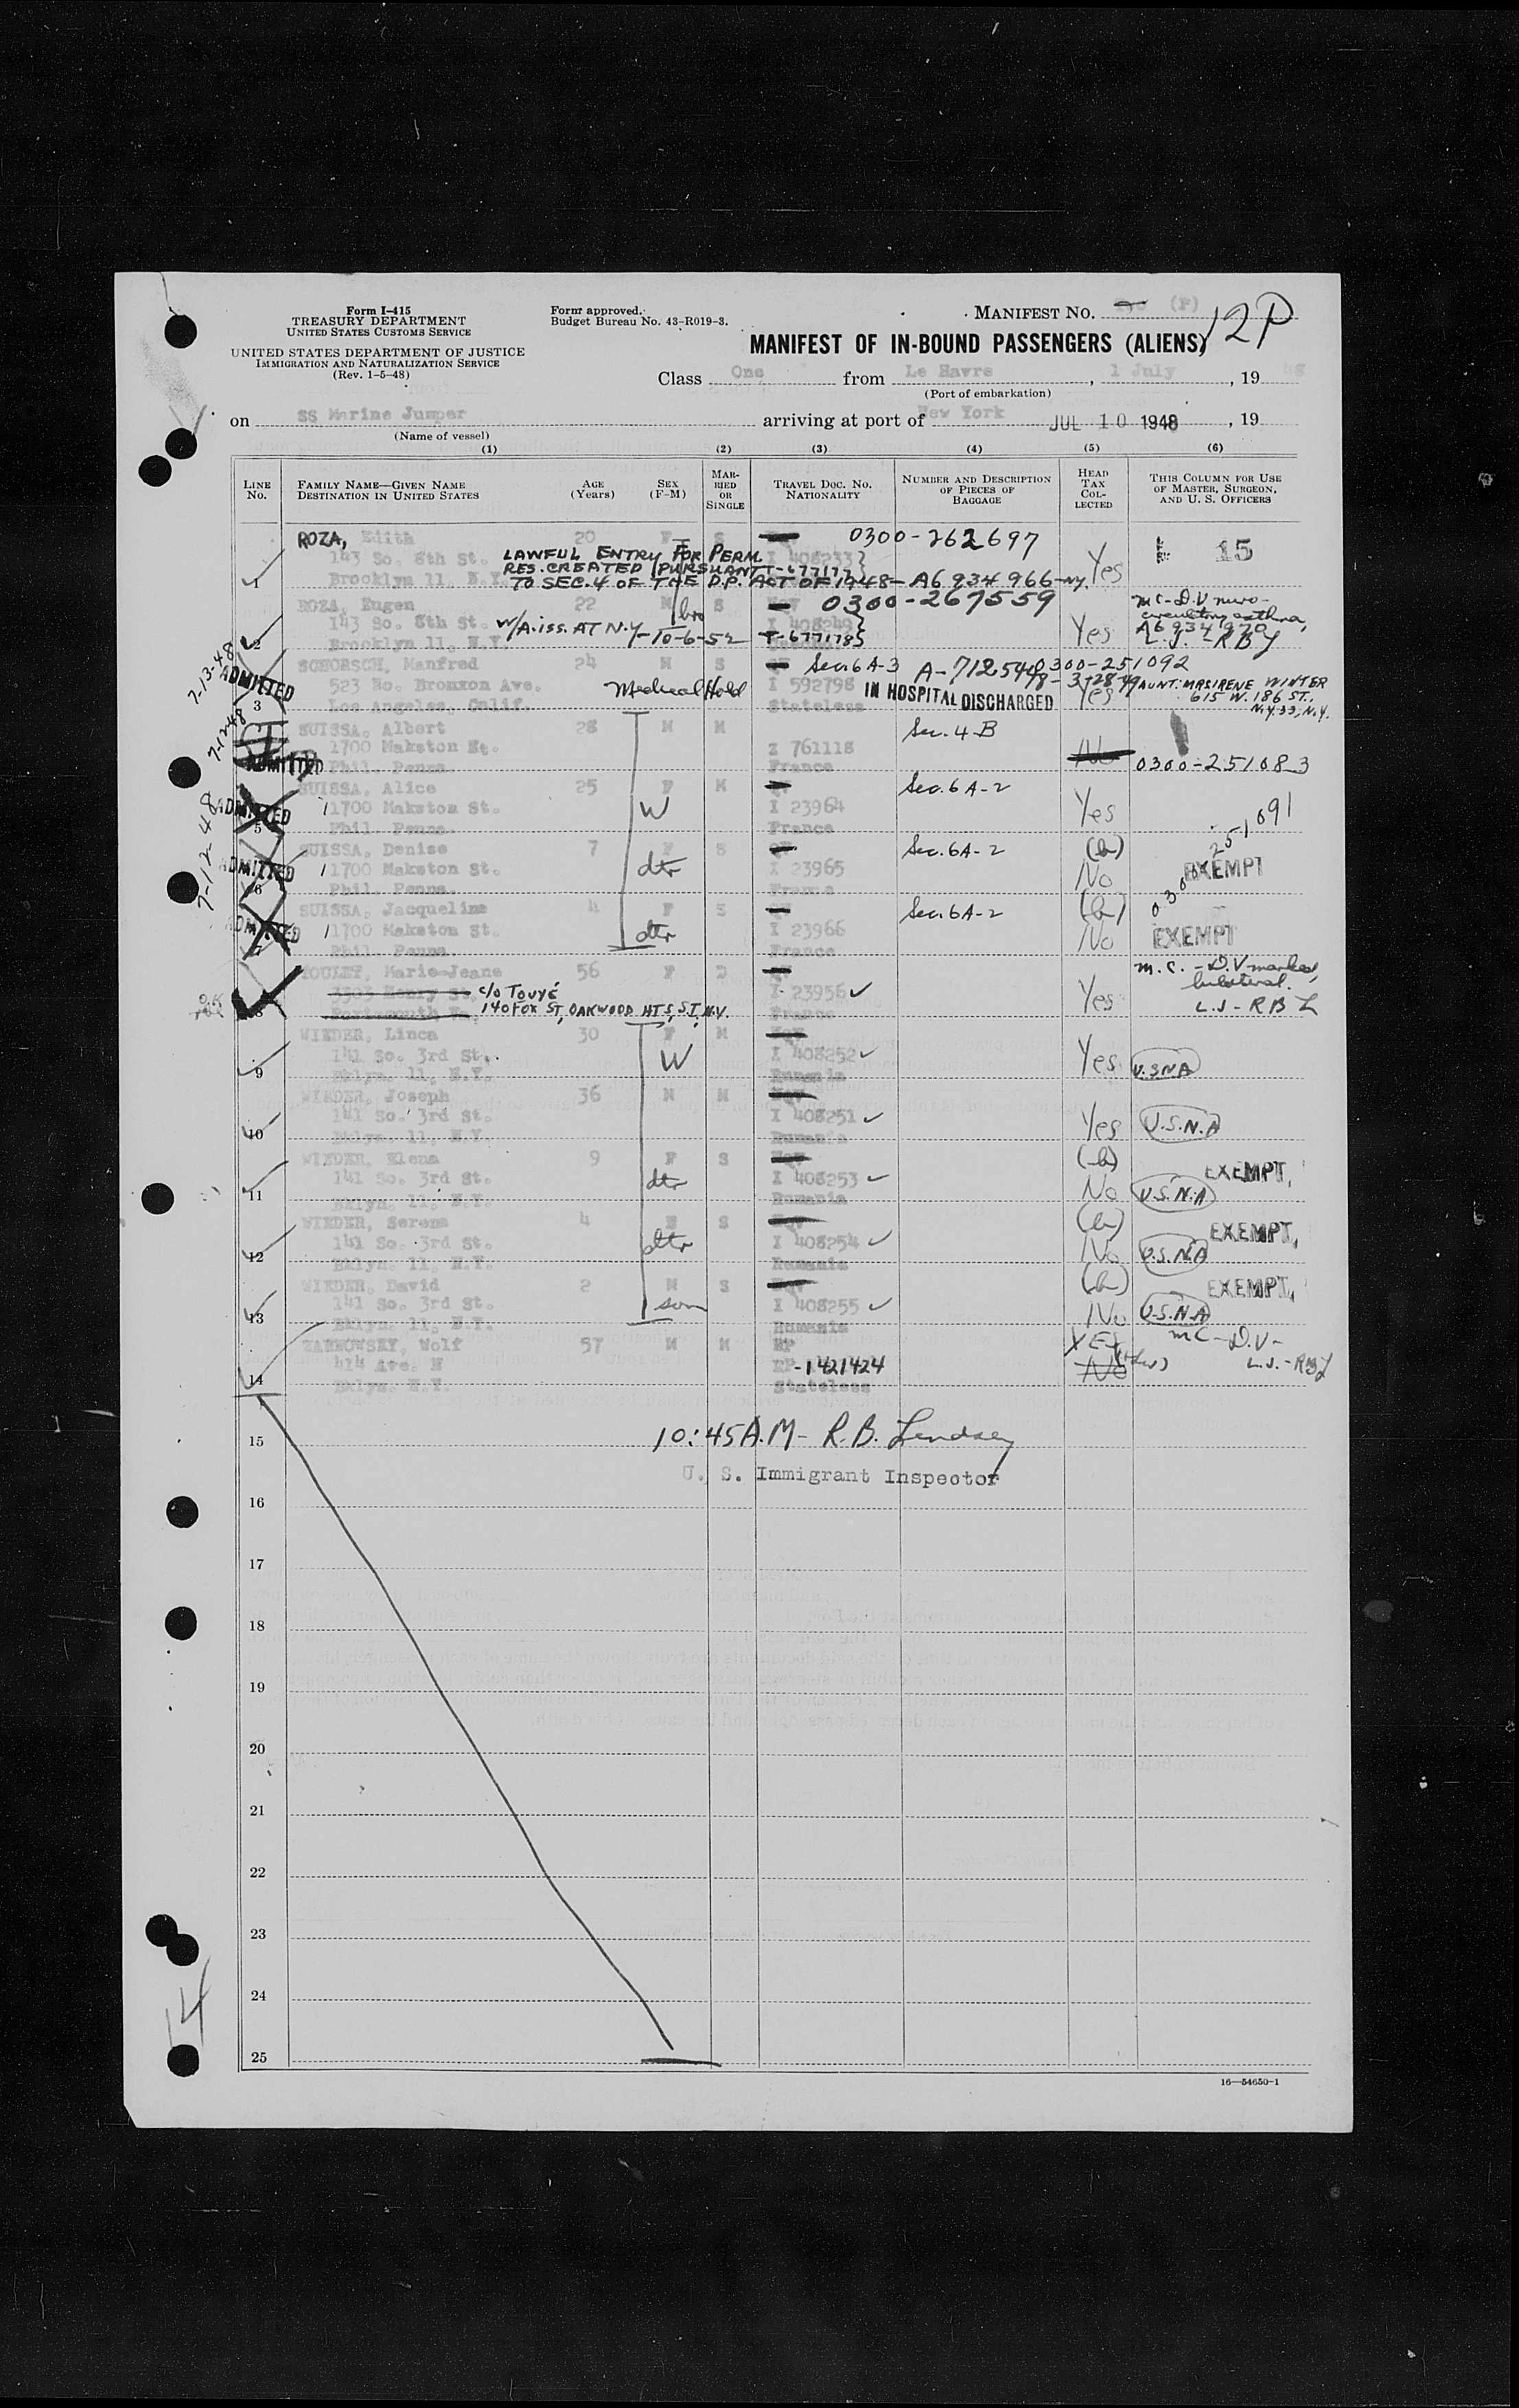 Form I-415
TREASURY DEPARTMENT
UNITED STATES CUSTOMS SERVICE
UNITED STATES DEPARTMENT OF JUSTICE
IMMIGRATION AND NATURALIZATION SERVICE
(Rev. 1-5-48)
Form approved.
Budget Bureau No. 43-R019-3.
MANIFEST NO. (F) 12P
MANIFEST OF IN-BOUND PASSENGERS (ALIENS)
Class One from Le Havre, 1 July, 19
(Port of embarkation)
on SS Marine Jumper arriving at port of New York JUL 10 1948, 19
(Name of vessel)
(1) (2) (3) (4) (5) (6)
LINE No. FAMILY NAME—GIVEN NAME DESTINATION IN UNITED STATES AGE (Years) SEX (F-M) MARRIED OR SINGLE TRAVEL DOC. NO. NATIONALITY NUMBER AND DESCRIPTION OF PIECES OF BAGGAGE HEAD TAX COLLECTED THIS COLUMN FOR USE OF MASTER, SURGEON, AND U. S. OFFICERS
ROZA, Edith 20 F S 0300-262697
143 So. 8th St. LAWFUL ENTRY FOR PERM. I 408233 Yes 15
RES. CREATED PURSUANT T-677177
1 Brooklyn 11, N.Y. TO SEC. 4 OF THE D.P. ACT OF 1948- A6 934 966-NY.
ROZA, Eugen 22 M bro S 0300-267559
143 So. 8th St. W/A. iss. AT N.Y.-10-6-52 I 408249 A6 934 970
2 Brooklyn 11, N.Y. T-677178 Yes L.J.-RBL
7-13-48 ADMITTED
SCHORSCH, Manfred 24 M S Sec. 6A-3 A-7125448 0300-251092
523 No. Bronxon Ave. Medical Hold I 592798 IN HOSPITAL DISCHARGED 3-28-49 Yes AUNT: MRS IRENE WINTER
3 Los Angeles, Calif. Stateless 615 W. 186 ST., N.Y. 33, N.Y.
7-12-48 ADMITTED
SUISSA, Albert 28 M M Sec. 4-B
1700 Makston St. Z 761118 No
Phil. Penna. France 0300-251083
ADMITTED
SUISSA, Alice 25 F M Sec. 6A-2
1700 Makston St. W I 23964 Yes
5 Phil. Penna. France
7-12-48 ADMITTED
SUISSA, Denise 7 F S QV Sec. 6A-2 (b)
1700 Makston St. dtr I 23965 No EXEMPT 0300-251091
6 Phil. Penna. France
ADMITTED
SUISSA, Jacqueline 4 F S QV Sec. 6A-2 (b)
1700 Makston St. dtr I 23966 No EXEMPT
7 Phil. Penna. France
TOULET, Marie-Jeane 56 F D QV M.C.-D.V marked,
3303 Henry St. c/o TOUYÉ I 23956 Yes bilateral.
8 Portsmouth Va. 140 FOX ST, OAKWOOD HTS, S.I, N.Y. France L.J-RBL
WIEDER, Linca 30 F M NQV
141 So. 3rd St. W I 408252 Yes U.S.N.A
9 Bklyn. 11, N.Y. Rumania
WIEDER, Joseph 36 M M NQV
141 So. 3rd St. I 408251 Yes U.S.N.A
10 Bklyn. 11, N.Y. Rumania
WIEDER, Elena 9 F S NQV (b) EXEMPT,
141 So. 3rd St. dtr I 408253 No U.S.N.A
11 Bklyn. 11, N.Y. Rumania
WIEDER, Serena 4 S NQV (b) EXEMPT,
141 So. 3rd St. dtr I 408254 No U.S.N.A
12 Bklyn. 11, N.Y. Rumania
WIEDER, David 2 M S NQV (b) EXEMPT,
141 So. 3rd St. son I 408255 No U.S.N.A
13 Bklyn. 11, N.Y. Rumania
ZARNOWSKY, Wolf 57 M M RP YES MC-D.V-
4th Ave. N RP-1421424 No L.J.-RBL
14 Bklyn. N.Y. Stateless
10:45 A.M- R.B. Lindsey
15
U. S. Immigrant Inspector
16
17
18
19
20
21
22
23
24
25
14
16—54650-1